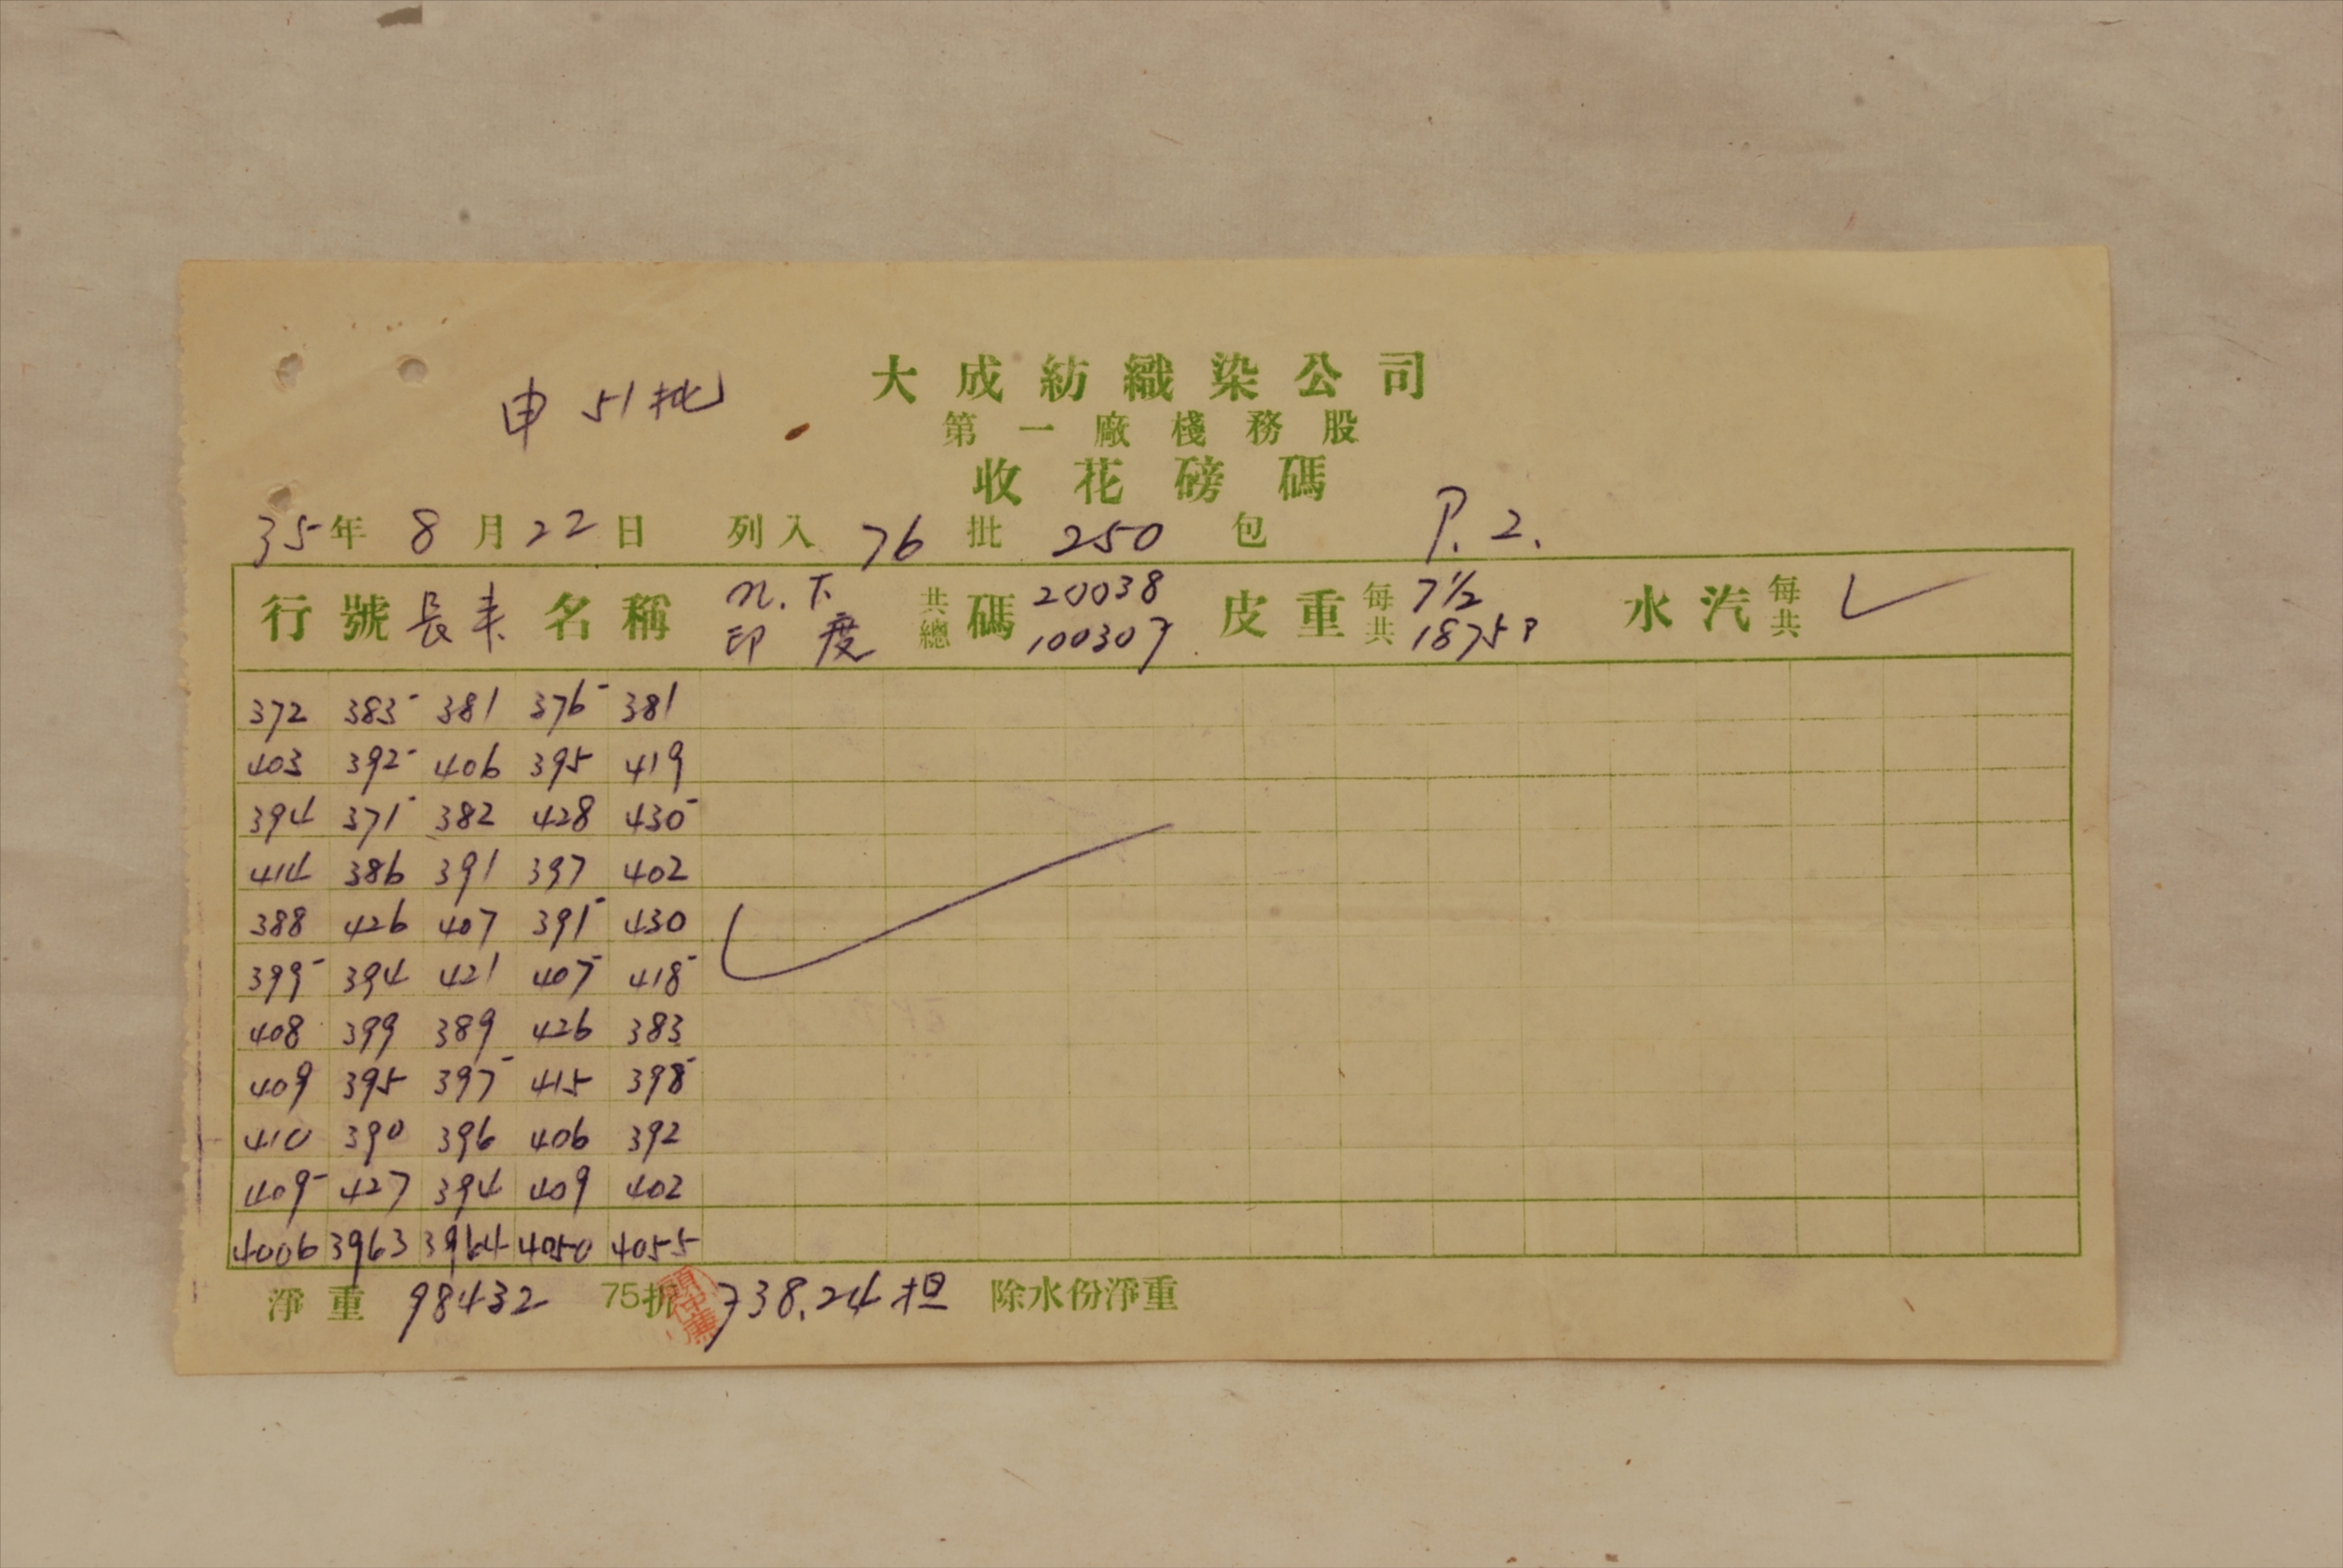 申 51批
大成紡織染公司
第一廠棧務股
收花磅碼
35年 8月22日 列入 76 批 250 包 P. 2.
行號 長丰 名稱 n.T. 印度 共總碼 20038 100307 皮重 每共 7½ 1875P 水汽 每共
372 383- 381 376- 381
403 392- 406 395 419
394 371- 382 428 430-
414 386 391 397 402
388 426 407 391- 430
399- 394 421 407- 418-
408 399 389 426 383
409 395 397- 415 398-
410 390 396 406 392
409- 427 394 409 402
4006 3963 3964 4050 4055
淨重 98432 75折 738.24担 除水份淨重